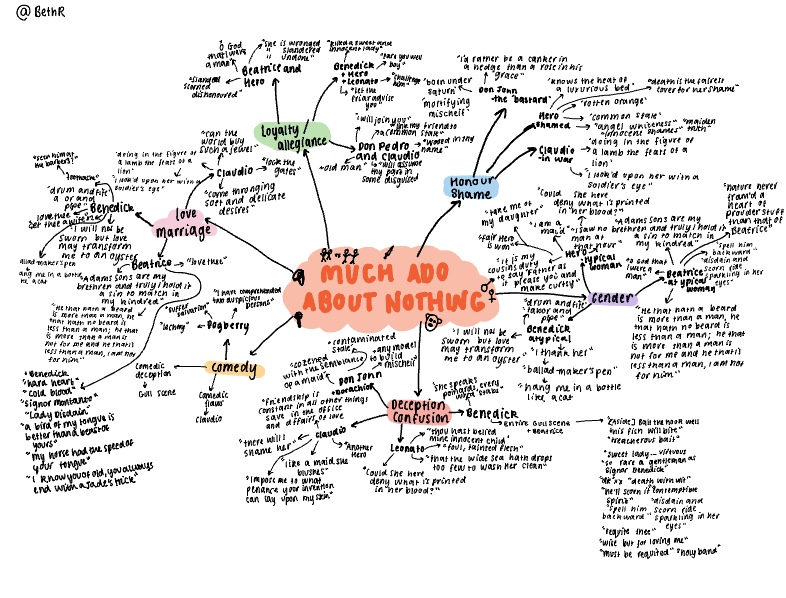 @ BethR
MUCH ADO
ABOUT NOTHING
Loyalty
allegiance
Beatrice and
Hero
"O God
that I were
a man"
"she is wronged
slandered
undone"
"slandered
scorned
dishonoured"
Benedick
+ Hero
+ Leonato
"killed a sweet and
innocent lady"
"fare you well
boy"
"challenge
him"
"let the
friar advise
you"
Don Pedro
and Claudio
"will join you"
"link my friend to
a common stale"
"wooed in thy
name"
"old man"
"will assume
thy part in
some disguise"
Honour
Shame
Don John
- the "bastard"
"I'd rather be a canker in
a hedge than a rose in his
grace"
"born under
Saturn"
"mortifying
mischief"
Hero
shamed
"knows the heat of
a luxurious bed"
"death is the fairest
cover for her shame"
"rotten orange"
"common stale"
"angel whiteness"
"maiden
truth"
"innocent shames"
Claudio
in war
"doing in the figure of
a lamb the feats of a
lion"
"I look'd upon her with a
soldier's eye"
"Could she here
deny what is printed
in her blood?"
Gender
Hero
typical
woman
"take me of
my daughter"
"fair Hero
is won"
"I am a
maid"
"I saw no
man at
that hour"
"it is my
cousins duty
to say 'Father as
it please you' and
make curtsy"
Beatrice
atypical
woman
"Adams sons are my
brethren and truly I hold it
a sin to match in
my kindred"
"O God that
I were a
man"
"nature never
fram'd a
heart of
prouder stuff
than that of
Beatrice"
"spell him
backward"
"disdain and
scorn ride
sparkling in her
eyes"
"He that hath a beard
is more than a man, he
that hath no beard is
less than a man; he that
is more than a man is
not for me and he that is
less than a man, I am not
for him"
Benedick
atypical
"drum and fife
tabor and
pipe"
"I will not be
sworn but love
may transform
me to an oyster"
"I thank her"
"ballad-maker's pen"
"hang me in a bottle
like a cat"
Love
marriage
Claudio
"can the
world buy
such a jewel"
"doing in the figure of
a lamb the feats of a
lion"
"I look'd upon her with a
soldier's eye"
"lock the
gates"
"come thronging
soft and delicate
desires"
Benedick
"seen him at
the barbers?"
"toothache"
"drum and fife
tabor and
pipe"
"love thee
against my will"
"I will not be
sworn but love
may transform
me to an oyster"
"ballad-maker's pen"
"hang me in a bottle
like a cat"
Beatrice
"love thee"
"Adams sons are my
brethren and truly I hold it
a sin to match in
my kindred"
"He that hath a beard
is more than a man, he
that hath no beard is
less than a man; he that
is more than a man is
not for me and he that is
less than a man, I am not
for him"
"Benedick"
"hard heart"
"cold blood"
"Signor Montanto"
"Lady Disdain"
"a bird of my tongue is
better than a beast of
yours"
"my horse had the speed of
your tongue"
"I know you of old, you always
end with a jade's trick"
comedy
Dogberry
"suffer
salvation"
"I have comprehended
two auspicious
persons"
"lechery"
comedic
deception
Gull scene
comedic
flaws
Claudio
Deception
Confusion
Don John
+ Borachio
"contaminated
stale"
"cozened
with the semblance
of a maid"
"any model
to build
mischief"
claudio
"friendship is
constant in all other things
save in the office
and affairs of love"
"there will I
shame her"
"like a maid she
blushes"
"Another
Hero"
"Impose me to what
penance your invention
can lay upon my sin"
Leonato
"thou hast belied
mine innocent child"
"foul, tainted flesh"
"that the wide sea hath drops
too few to wash her clean"
"Could she here
deny what is printed
in her blood?"
Benedick
"She speaks
poniards, every
word stabs"
entire Gull scene
+ Beatrice
"[Aside] Bait the hook well
this fish will bite"
"treacherous bait"
"sweet lady – virtuous
so rare a gentleman as
signor Benedick"
"death with wit"
"he'll scorn it contemptible
spirit"
"disdain and
scorn ride
sparkling in her
eyes"
"spell him
backward"
"requite thee"
"wise but for loving me"
"must be requited"
"holy band"